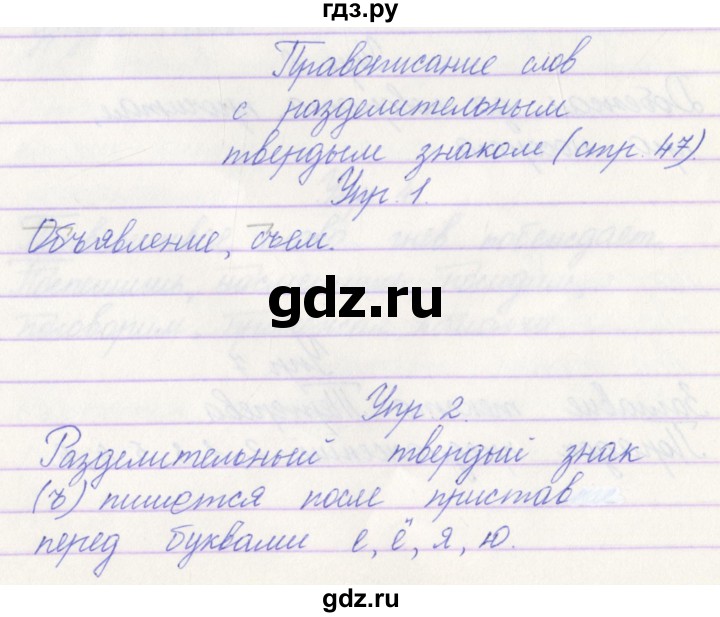 гдз.ру
Правописание слов
с разделительным
твердым знаком (стр. 47).
Упр. 1.
Объявление, съем.
gdz.ru
Упр. 2.
Разделительный твердый знак
(ъ) пишется после пристав
перед буквами е, ё, я, ю.
gdz.ru